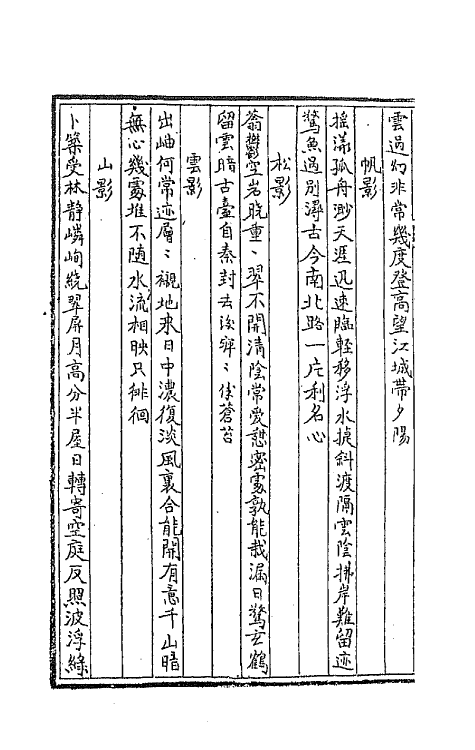 雲過幻非常幾度登高望江城帶夕陽
帆影
搖漾孤舟渺天涯迅速臨輕移浮水換斜渡隔雲陰拂岸難留迹
驚魚過別潯古今南北路一片利名心
松影
蓊鬱空岩晚重〻翠不開清陰常愛憩密處孰能栽漏日驚玄鶴
留雲暗古臺自秦封去後寂〻伴蒼苔
雲影
出岫何常迹層〻襯地來日中濃復淡風裏合能開有意千山暗
無心幾處堆不随水流相映只徘徊
山影
卜築受林靜嶙峋繞翠屏月高分半屋日轉寄空庭反照波浮綠